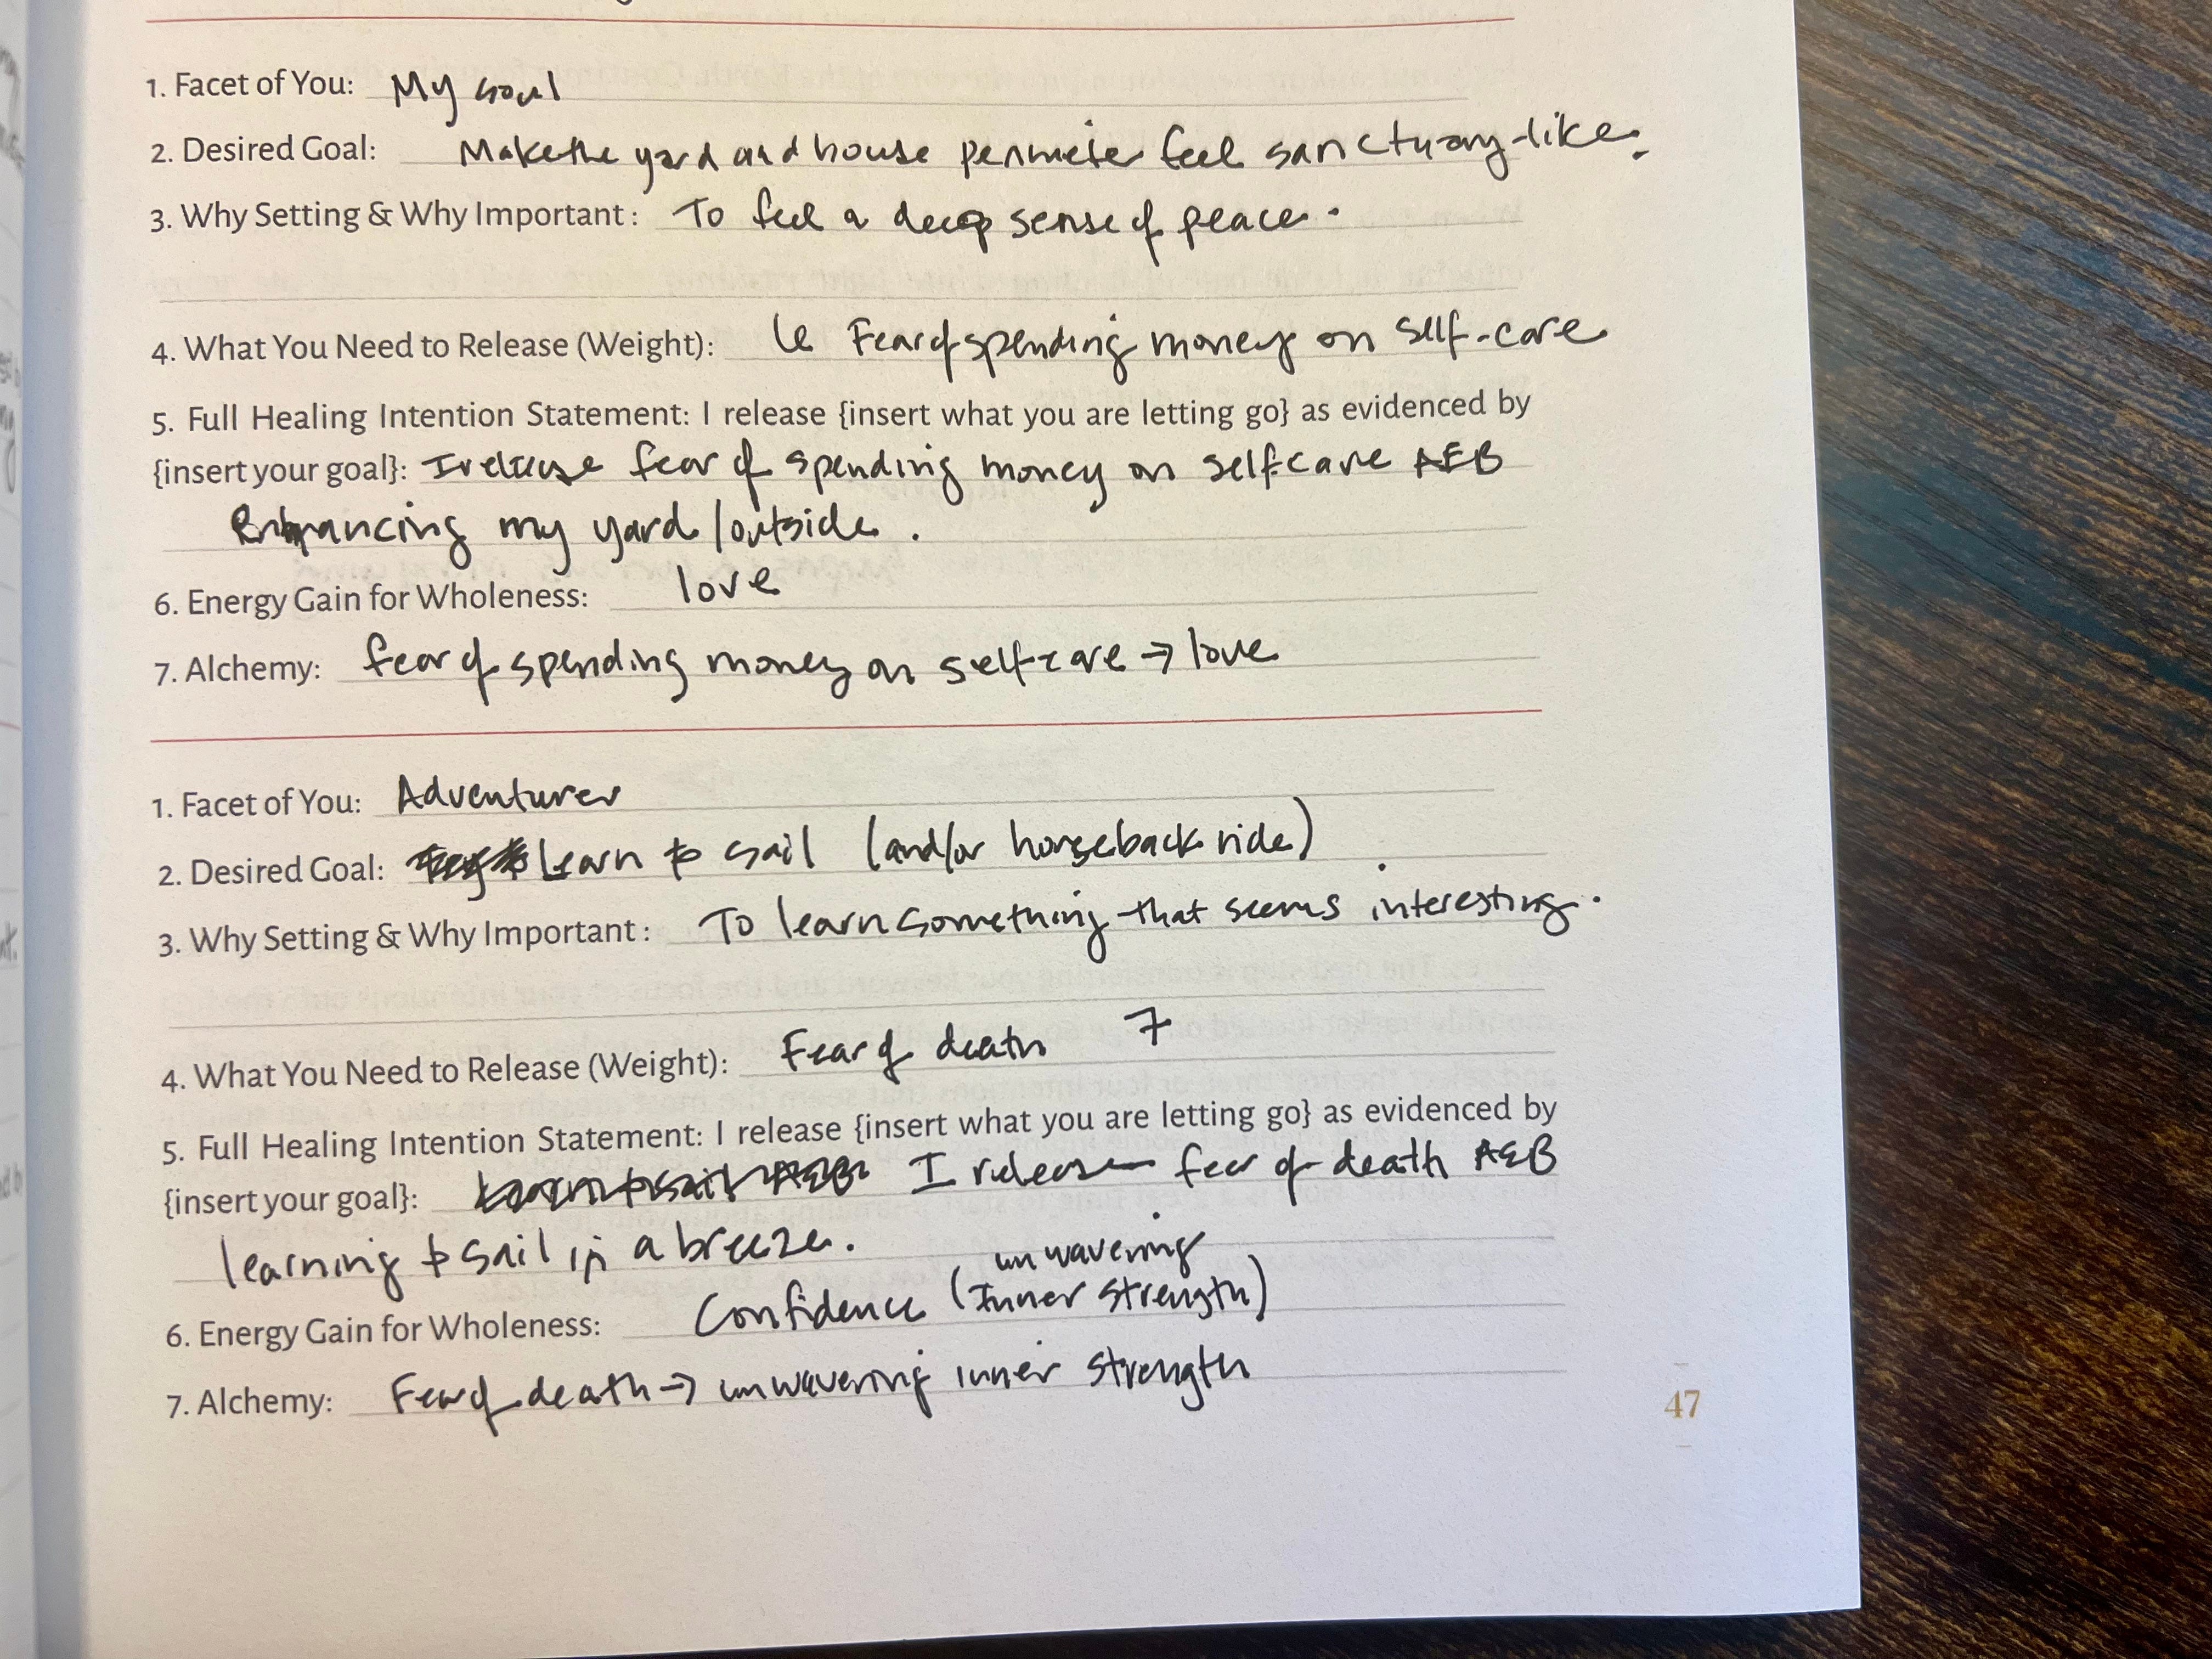 1. Facet of You: My soul
2. Desired Goal: Make the yard and house perimeter feel sanctuary-like.
3. Why Setting & Why Important: To feel a deep sense of peace.
4. What You Need to Release (Weight): Fear of spending money on self-care
5. Full Healing Intention Statement: I release {insert what you are letting go} as evidenced by
{insert your goal}: I release fear of spending money on selfcare AEB
Enhancing my yard/outside.
6. Energy Gain for Wholeness: love
7. Alchemy: fear of spending money on self-care → love
1. Facet of You: Adventurer
2. Desired Goal: Learn to sail (and/or horseback ride)
3. Why Setting & Why Important: To learn something that seems interesting.
4. What You Need to Release (Weight): Fear of death 7
5. Full Healing Intention Statement: I release {insert what you are letting go} as evidenced by
{insert your goal}: I release fear of death AEB
learning to sail in a breeze.
unwavering
6. Energy Gain for Wholeness: Confidence (Inner strength)
7. Alchemy: Fear of death → unwavering inner strength
47